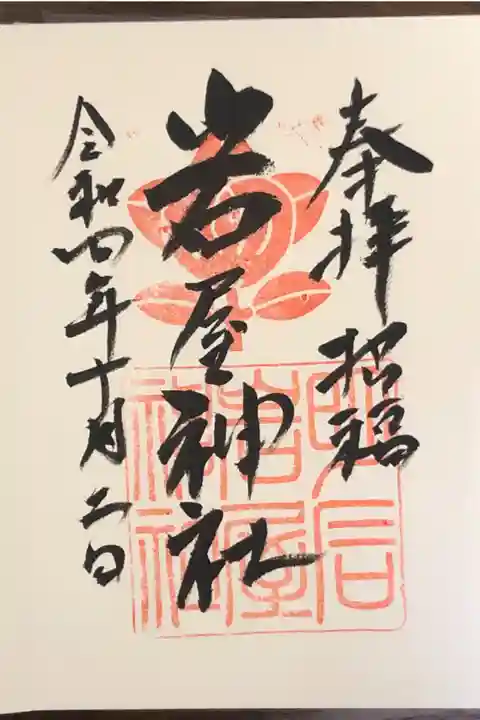 奉拝 招福
岩屋神社
令和四年十月二日